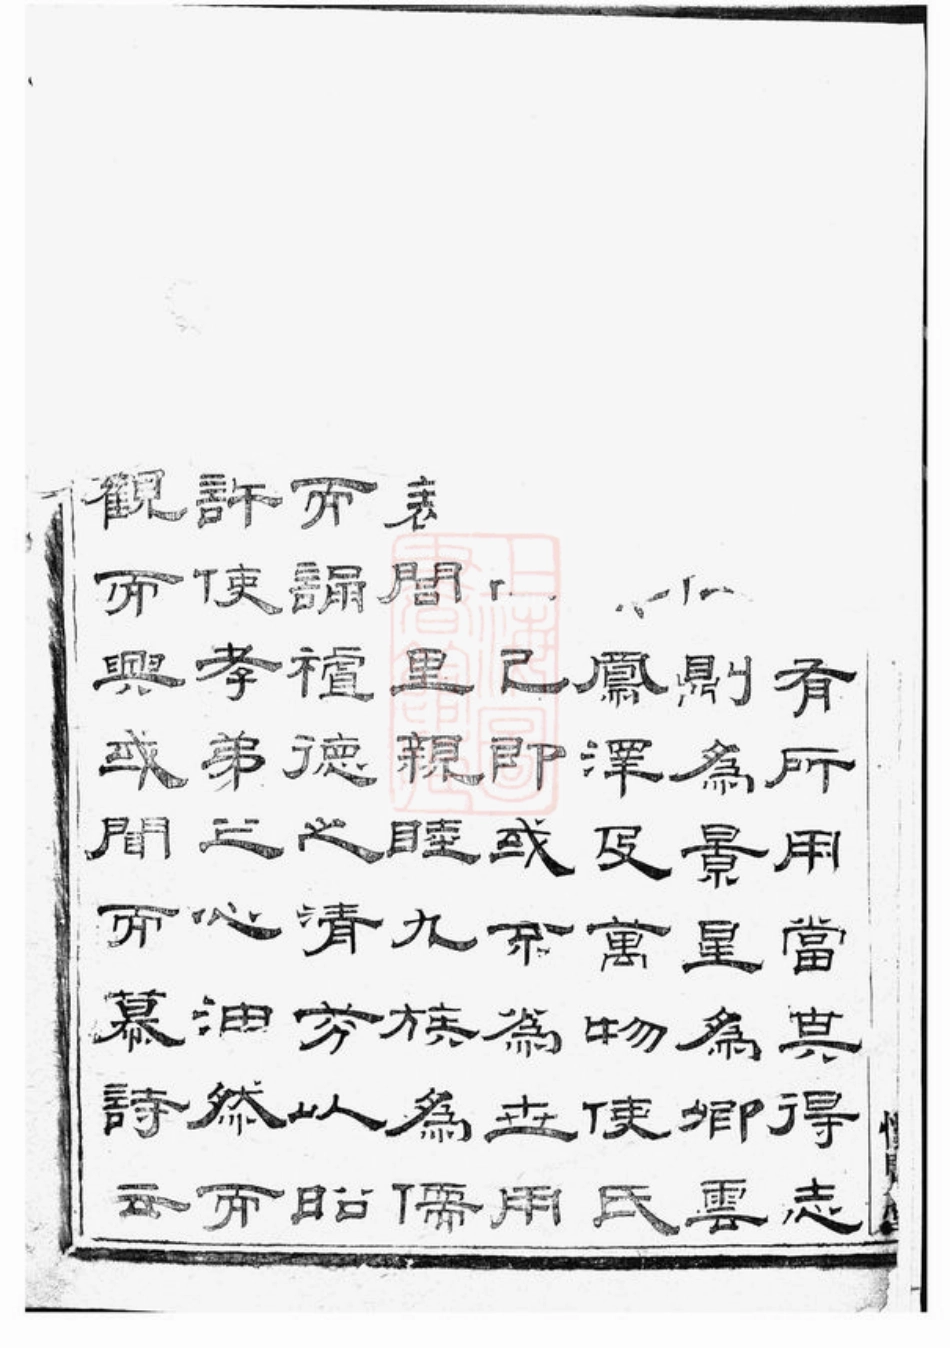 有所用當其得志
則為景星為卿雲
鳳澤及萬物使氏
已即或不為世用
表閭里親睦九族為儒
而誦禮德之清芬以昭
許使孝弟之心油然而
觀而興或聞而慕詩云
上海圖書館藏